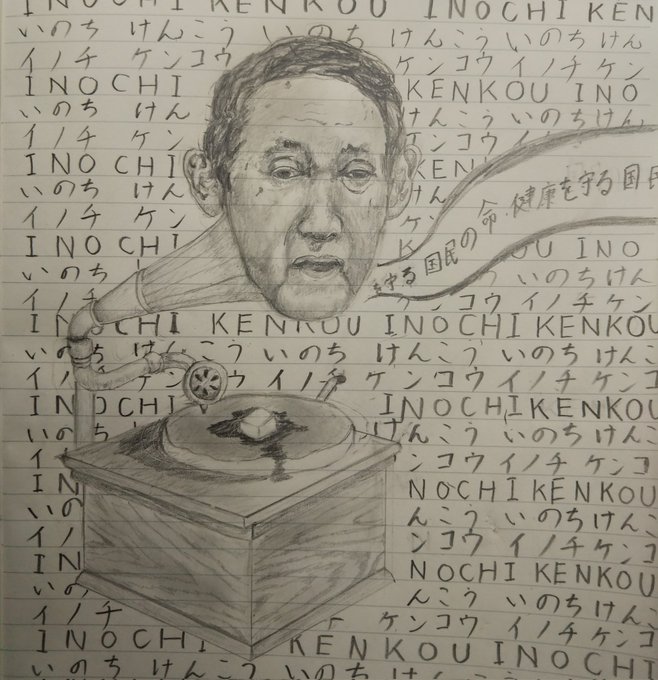 INOCHI KENKOU INOCHI KEN
いのち けんこう いのち けんこう いのち けん
イノチ ケンコウ ケンコウ イノチ ケン
INOCHI KENKOU INO
いのち けん けんこう いのちけん
イノチ ケン ケンコウ イノチケン
INOCHI KEN
いのち けん けん
イノチ ケン ケン
を守る国民の命、健康を守る国民
INOCHI K OU INO
いのち いのちけん
イノチ コウ イノチケン
INOCHI KENKOU INOCHI KENKOU
いのち けんこう いのち けんこう いのち けんこ
イノチ ケンコウ イノチ ケンコウ イノチ ケンコ
INOCHI INOCHI KENKOU
いの けんこう いのち けんこ
イ ンコウ イノチ ケンコ
IN NOCHI KENKOU
いの んこう いのち けんこ
イノ ンコウ イノチ ケンコ
IN NOCHI KENKOU
いの んこう いのち けんこ
イノチ ケンコウ イノチ ケンコ
INOCHI KENKOU INOCHI
いのち けんこう いのち けんこ